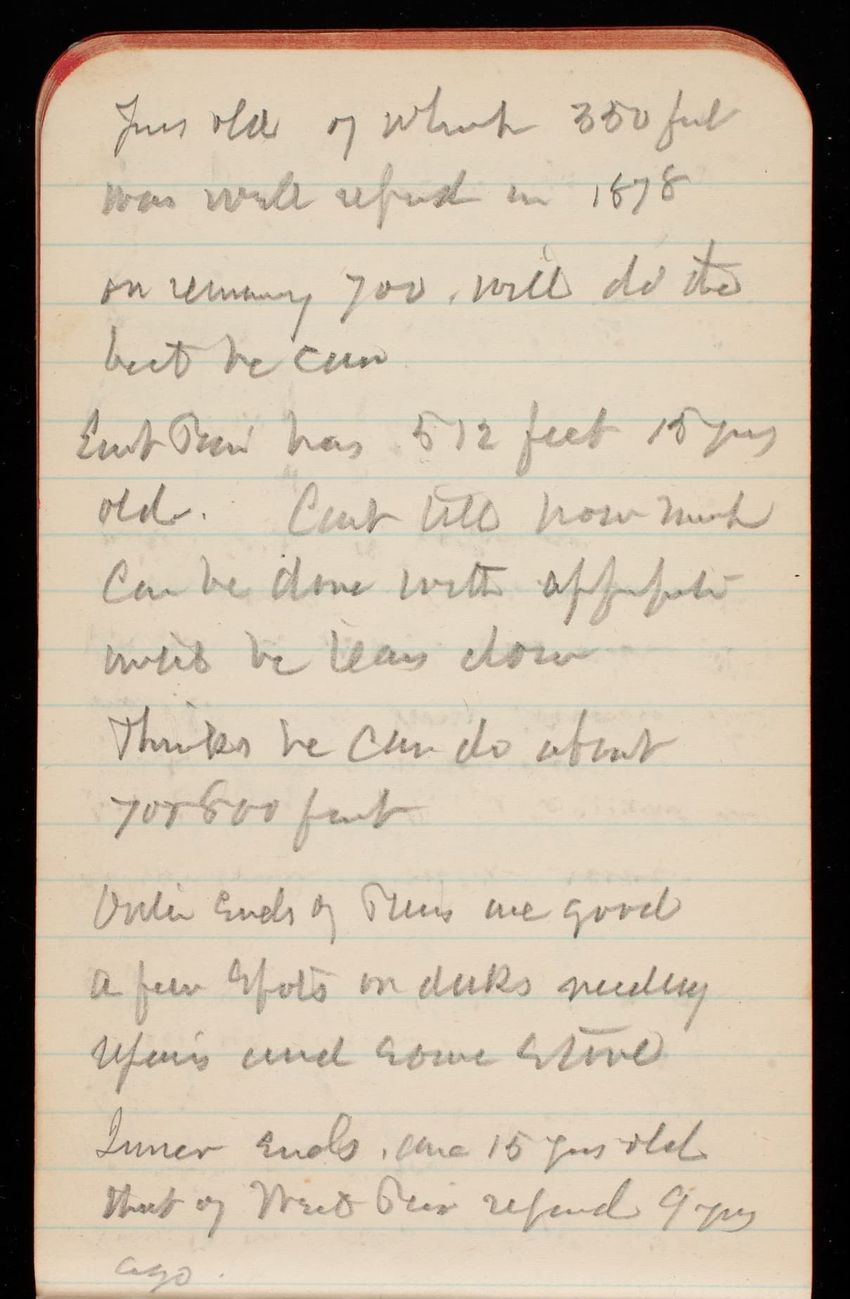 yrs old of which 350 feet
was well repred in 1878
on remaing 700. will do the
best he can
East Pier has 512 feet 15 yrs
old. Cant tell how much
Can be done with
until he tears down
Thinks he can do about
700 800 feet
Outer Ends of Piers are good
a few spots on decks needing
repairs and some stone
Inner Ends. are 15 yrs old
that of West Pier repred 9 yrs
ago.